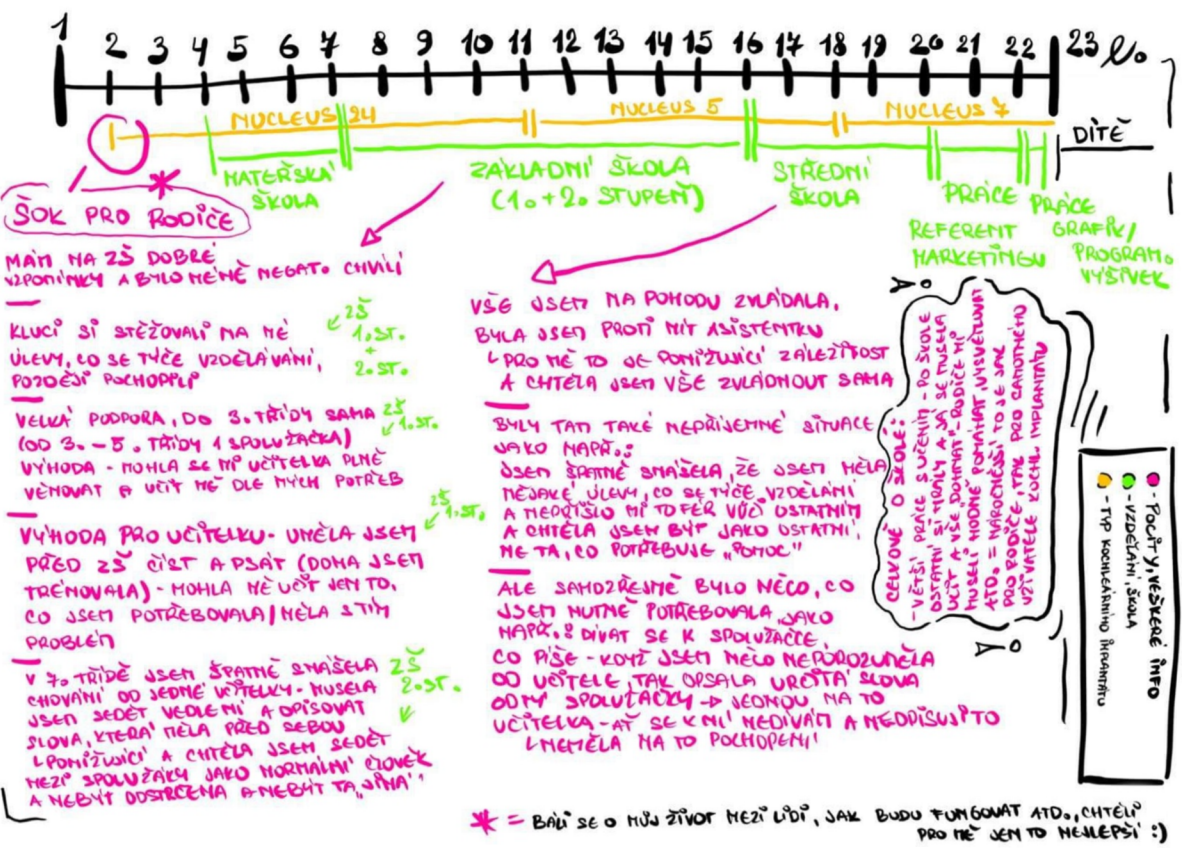 1 2 3 4 5 6 7 8 9 10 11 12 13 14 15 16 17 18 19 20 21 22 23 L.
NUCLEUS 24
NUCLEUS 5
NUCLEUS 7
DÍTĚ
MATEŘSKÁ
ŠKOLA
ZÁKLADNÍ ŠKOLA
(1.+2. STUPEŇ)
STŘEDNÍ
ŠKOLA
PRÁCE
REFERENT
MARKETINGU
PRÁCE
GRAFIK/
PROGRAM.
VÝŠIVEK
ŠOK PRO RODIČE
MÁM NA ZŠ DOBRÉ
VZPOMÍNKY A BYLO MÉNĚ NEGAT. CHVÍLÍ
KLUCI SI STĚŽOVALI NA MÉ
ÚLEVY, CO SE TÝČE VZDĚLÁVÁNÍ,
POZDĚJI POCHOPILI
ZŠ
1.ST.
+
2.ST.
VELKÁ PODPORA, DO 3. TŘÍDY SAMA
(OD 3. - 5. TŘÍDY 1 SPOLUŽAČKA)
VÝHODA - MOHLA SE MI UČITELKA PLNĚ
VĚNOVAT A UČIT MĚ DLE MÝCH POTŘEB
ZŠ
1.ST.
VÝHODA PRO UČITELKU - UMĚLA JSEM
PŘED ZŠ ČÍST A PSÁT (DOMA JSEM
TRÉNOVALA) - MOHLA MĚ UČIT JEN TO,
CO JSEM POTŘEBOVALA/MĚLA S TÍM
PROBLÉM
ZŠ
1.ST.
V 7. TŘÍDĚ JSEM ŠPATNĚ SNÁŠELA
CHOVÁNÍ OD JEDNÉ UČITELKY - MUSELA
JSEM SEDĚT VEDLE NÍ A OPISOVAT
SLOVA, KTERÁ MĚLA PŘED SEBOU
PONIŽUJÍCÍ A CHTĚLA JSEM SEDĚT
MEZI SPOLUŽÁKY JAKO NORMÁLNÍ ČLOVĚK
A NEBÝT ODSTRČENÁ A NEBÝT TA "JINÁ"
ZŠ
2.ST.
VŠE JSEM NA POHODU ZVLÁDALA,
BYLA JSEM PROTI MÍT ASISTENTKU
PRO MĚ TO JE PONIŽUJÍCÍ ZÁLEŽITOST
A CHTĚLA JSEM VŠE ZVLÁDNOUT SAMA
BYLY TAM TAKÉ NEPŘÍJEMNÉ SITUACE
JAKO NAPŘ.:
JSEM ŠPATNĚ SNÁŠELA, ŽE JSEM MĚLA
NĚJAKÉ ÚLEVY, CO SE TÝČE VZDĚLÁNÍ
A NEPŘIŠLO MI TO FÉR VŮČI OSTATNÍM
A CHTĚLA JSEM BÝT JAKO OSTATNÍ,
NE TA, CO POTŘEBUJE "POMOC"
ALE SAMOZŘEJMĚ BYLO NĚCO, CO
JSEM NUTNĚ POTŘEBOVALA, JAKO
NAPŘ.: DÍVAT SE K SPOLUŽAČCE,
CO PÍŠE - KDYŽ JSEM NĚCO NEPOROZUMĚLA
OD UČITELE, TAK OPSALA URČITÁ SLOVA
OD MÝ SPOLUŽAČKY → JEDNOU NA TO
UČITELKA - AŤ SE K NÍ NEDÍVÁM A NEOPISUJI TO
NEMĚLA NA TO POCHOPENÍ
CELKOVĚ O ŠKOLE:
- VĚTŠÍ PRÁCE S UČENÍM - PO ŠKOLE
OSTATNÍ SI HRÁLY A JÁ SE MUSELA
UČIT A VŠE DOHNAT - RODIČE MI
MUSELI HODNĚ POMÁHAT, VYSVĚTLOVAT
ATD. = NÁROČNĚJŠÍ TO JE JAK
PRO RODIČE, TAK PRO SAMOTNÉHO
UŽIVATELE KOCHL. IMPLANTÁTU
- POCITY, VEŠKERÉ INFO
- VZDĚLÁNÍ, ŠKOLA
- TYP KOCHLEÁRNÍHO IMPLANTÁTU
* = BÁLI SE O MŮJ ŽIVOT MEZI LIDI, JAK BUDU FUNGOVAT ATD., CHTĚLI
PRO MĚ JEN TO NEJLEPŠÍ :)